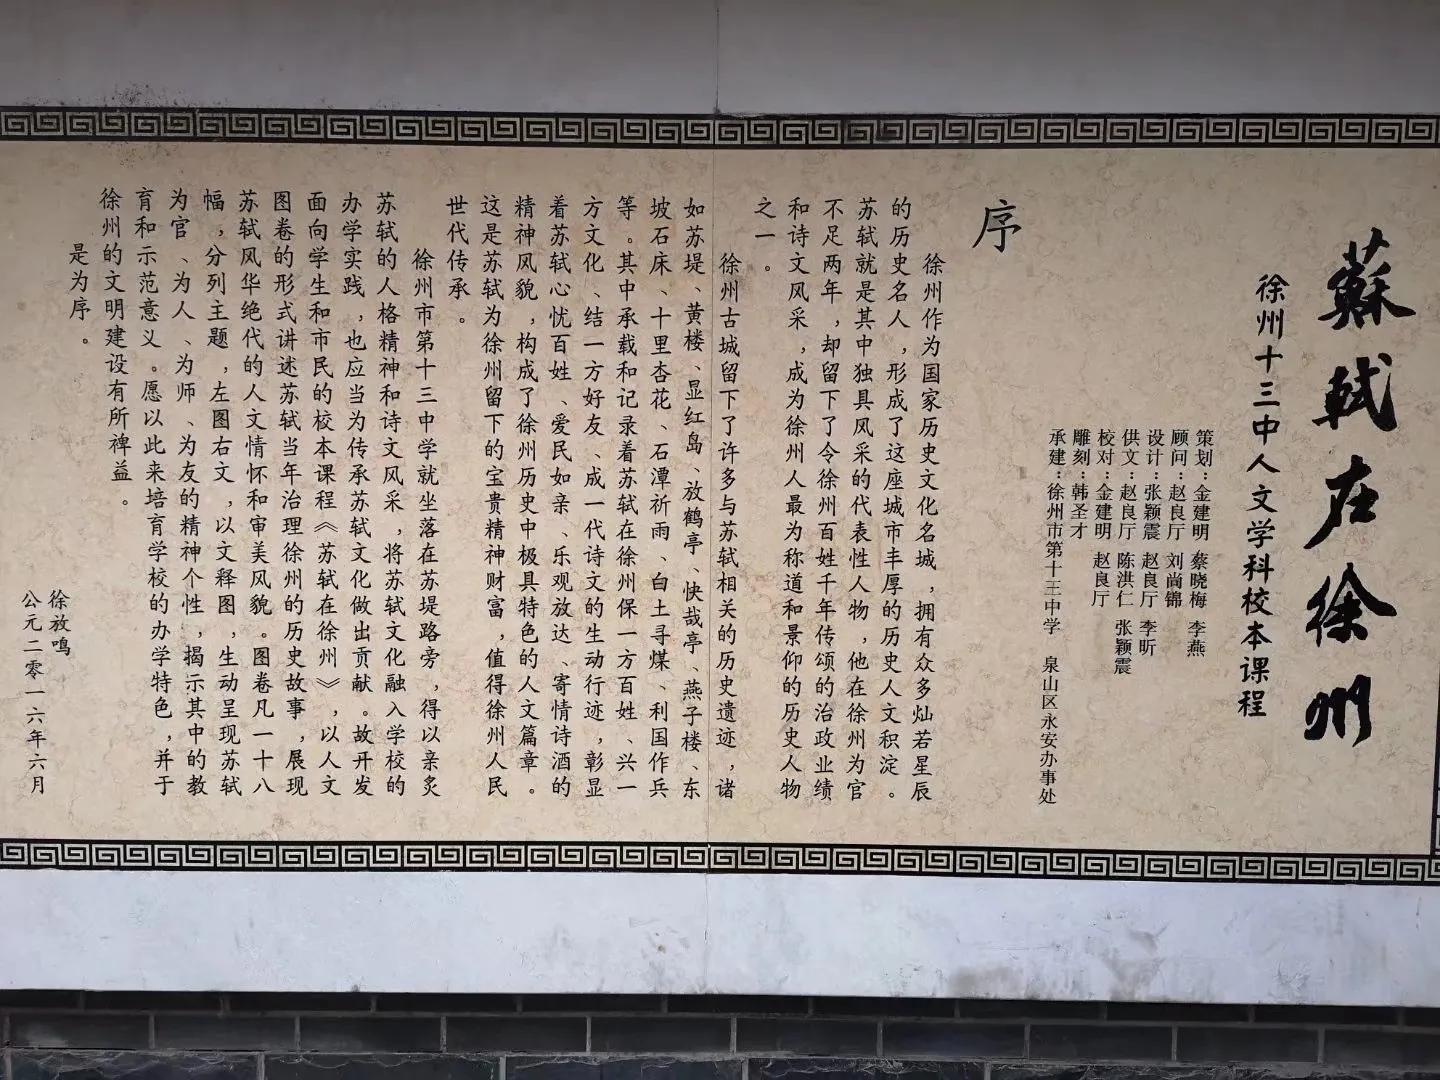 蘇軾在徐州
徐州十三中人文学科校本课程
策划：金建明 蔡晓梅 李燕
顾问：赵良厅 刘尚锦
设计：张颖震 赵良厅 李昕
供文：赵良厅 陈洪仁 张颖震
校对：金建明 赵良厅
雕刻：韩圣才
承建：徐州市第十三中学 泉山区永安办事处
序
徐州作为国家历史文化名城，拥有众多灿若星辰
的历史名人，形成了这座城市丰厚的历史人文积淀。
苏轼就是其中独具风采的代表性人物，他在徐州为官
不足两年，却留下了令徐州百姓千年传颂的治政业绩
和诗文风采，成为徐州人最为称道和景仰的历史人物
之一。
徐州古城留下了许多与苏轼相关的历史遗迹，诸
如苏堤、黄楼、显红岛、放鹤亭、快哉亭、燕子楼、东
坡石床、十里杏花、石潭祈雨、白土寻煤、利国作兵
等。其中承载和记录着苏轼在徐州保一方百姓、兴一
方文化、结一方好友、成一代诗文的生动行迹，彰显
着苏轼心忧百姓、爱民如亲、乐观放达、寄情诗酒的
精神风貌，构成了徐州历史中极具特色的人文篇章。
这是苏轼为徐州留下的宝贵精神财富，值得徐州人民
世代传承。
徐州市第十三中学就坐落在苏堤路旁，得以亲炙
苏轼的人格精神和诗文风采，将苏轼文化融入学校的
办学实践，也应当为传承苏轼文化做出贡献。故开发
面向学生和市民的校本课程《苏轼在徐州》，以人文
图卷的形式讲述苏轼当年治理徐州的历史故事，展现
苏轼风华绝代的人文情怀和审美风貌。图卷凡一十八
幅，分列主题，左图右文，以文释图，生动呈现苏轼
为官、为人、为师、为友的精神个性，揭示其中的教
育和示范意义。愿以此来培育学校的办学特色，并于
徐州的文明建设有所裨益。
是为序。
徐放鸣
公元二零一六年六月